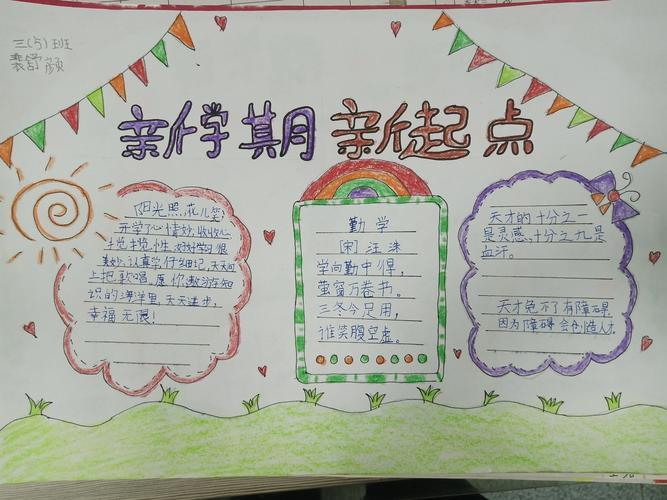 三(5)班
裴舒颜
新学期 新起点
阳光照,花儿笑,
开学了心情妙,收收心
拢拢性,好好学习很
美妙,认真学,仔细记,天天向
上把歌唱。愿你遨游在知
识的海洋里,天天进步,
幸福无限!
勤学
[宋]汪洙
学向勤中得,
萤留万卷书。
三冬今足用,
谁笑腹空虚。
天才的十分之一
是灵感,十分之九是
血汗。
天才免不了有障碍,
因为障碍会创造人才